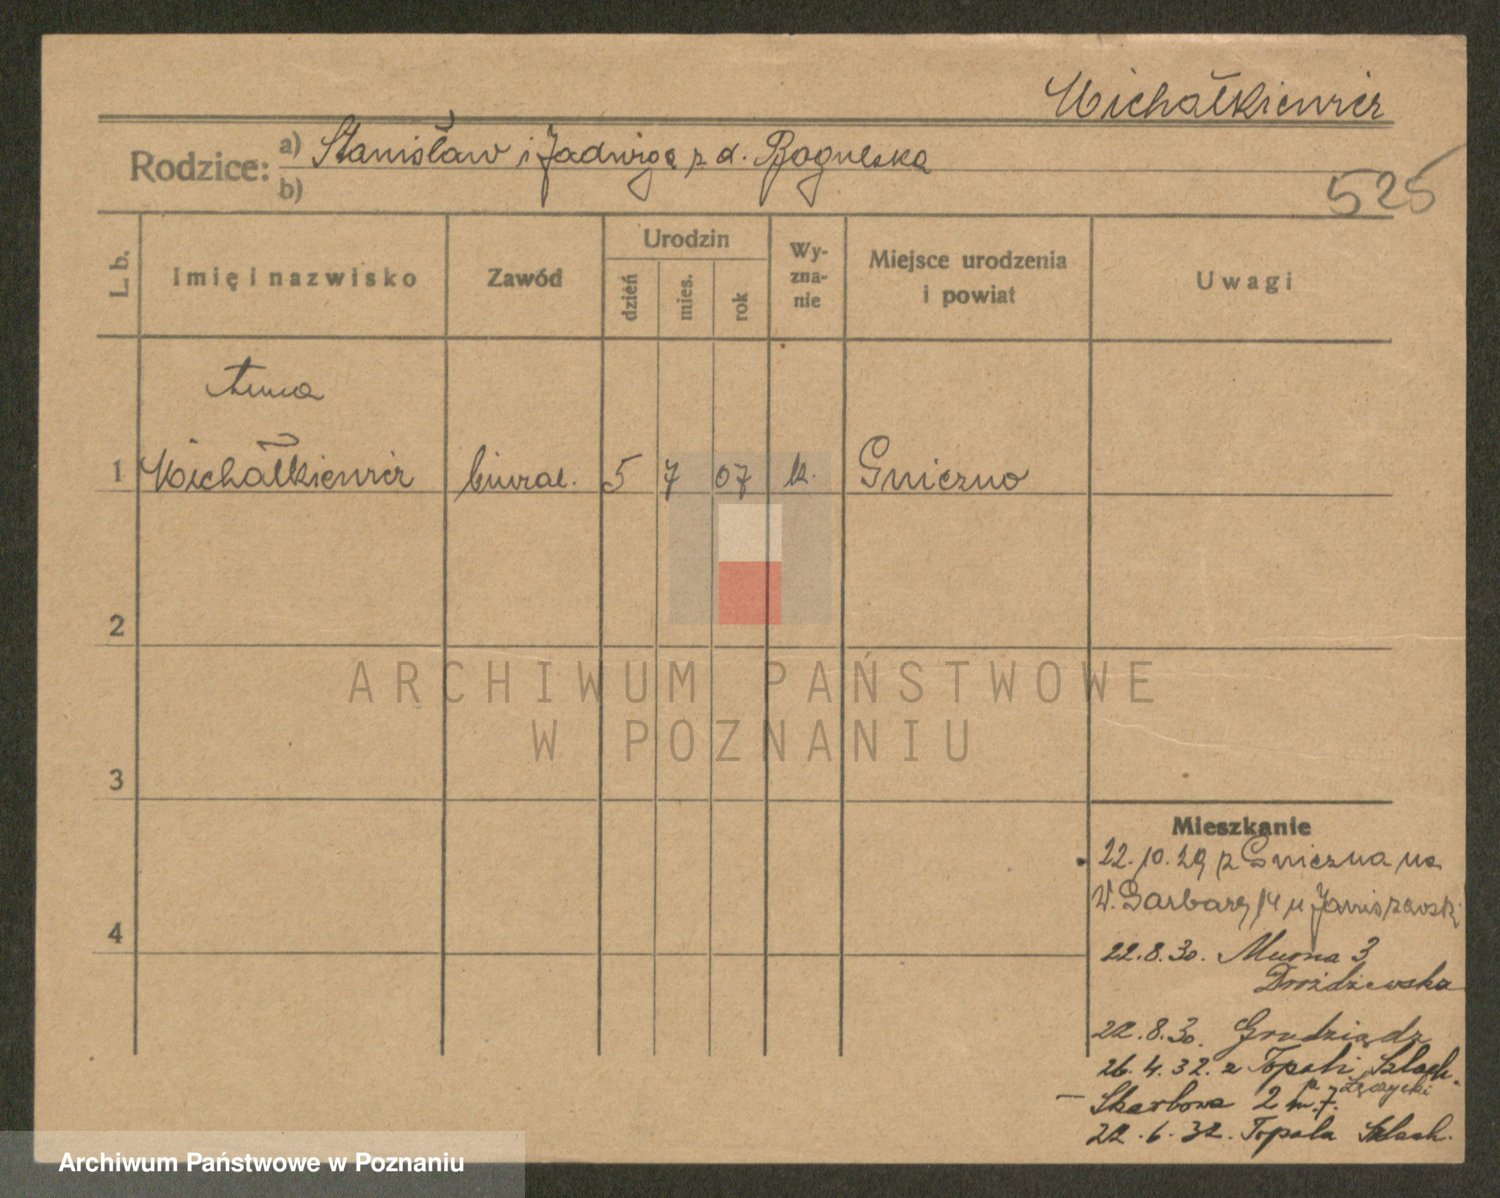 Michałkiewicz
Rodzice: a) Stanisław i Jadwiga z d.
b)
525
L. b.
Imię i nazwisko
Zawód
Urodzin
dzień
mies.
rok
Wy-
zna-
nie
Miejsce urodzenia
i powiat
Uwagi
Anna
1 Michałkiewicz biural. 5 7 07 k. Gniezno
2
3
4
ARCHIWUM PAŃSTWOWE
W POZNANIU
Mieszkanie
22.10.29 z Gniezna na
W. Garbary 14 u Janiszewski
22.8.30. Murna 3
Drożdżewska
22.8.30. Grudziądz
26.4.32. z Topoli Szlach.
p. Łęczycki
Skarbowa 2 m. 7.
22.6.32. Topola Szlach.
Archiwum Państwowe w Poznaniu